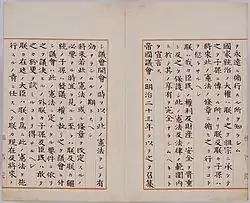 永遠ニ循行スル所ヲ知ラシム
國家統治ノ大權ハ朕カ之ヲ祖宗ニ承ケテ
之ヲ子孫ニ傳フル所ナリ朕及朕カ子孫ハ
將來此ノ憲法ノ條章ニ循ヒ之ヲ行フコト
ヲ愆ラサルヘシ
朕ハ我カ臣民ノ權利及財産ノ安全ヲ貴重
シ及之ヲ保護シ此ノ憲法及法律ノ範圍内
ニ於テ其ノ享有ヲ完全ナラシムヘキコト
ヲ宣言ス
帝國議會ハ明治二十三年ヲ以テ之ヲ召集
シ議會開會ノ時ヲ以テ此ノ憲法ヲシテ有
効ナラシムルノ期トスヘシ
將來若此ノ憲法ノ或ル條章ヲ改定スルノ
必要ナル時宜ヲ見ルニ至ラハ朕及朕カ繼
統ノ子孫ハ發議ノ權ヲ執リ之ヲ議會ニ付
シ議會ハ此ノ憲法ニ定メタル要件ニ依リ
之ヲ議決スルノ外朕カ子孫及臣民ハ敢テ
之カ紛更ヲ試ミルコトヲ得サルヘシ
朕カ在廷ノ大臣ハ朕カ爲ニ此ノ憲法ヲ施
行スルノ責ニ任スヘク朕カ現在及將來ノ